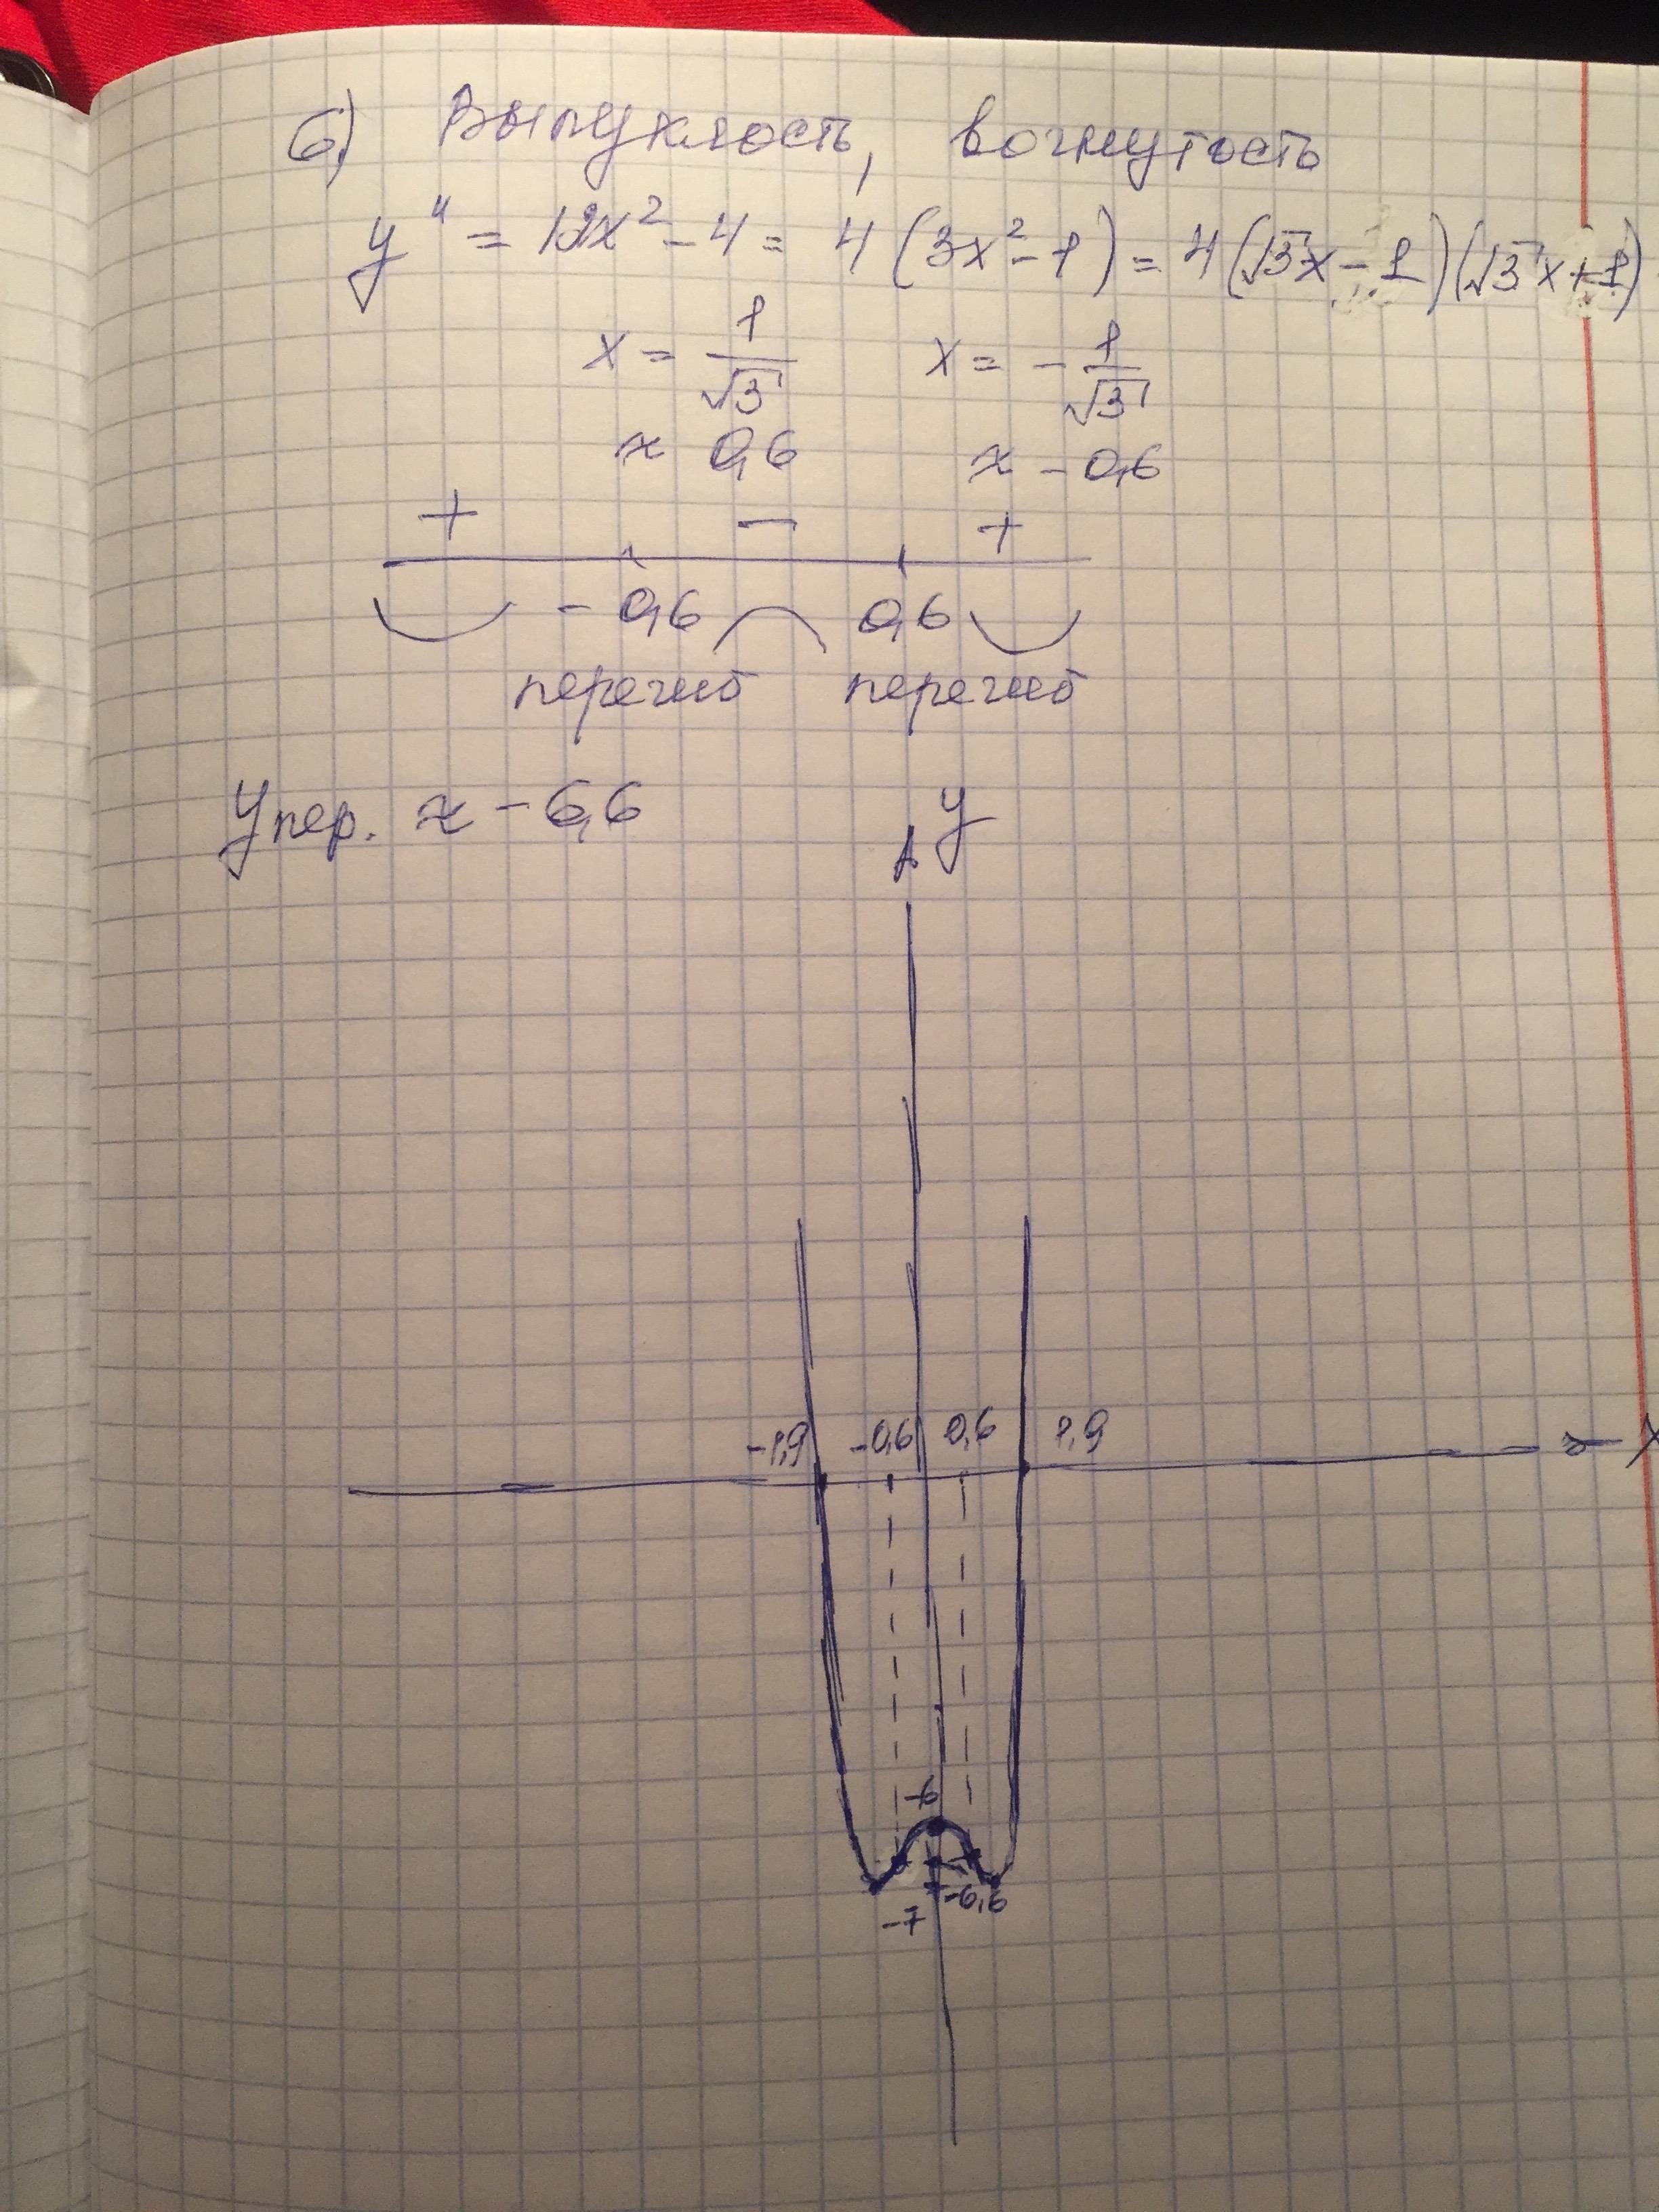 6) Выпуклость, вогнутость
y" = 12x² - 4 = 4(3x² - 1) = 4(√3x - 1)(√3x + 1)
x = 1/√3 x = - 1/√3
≈ 0,6 ≈ - 0,6
+ - +
- 0,6 0,6
перегиб перегиб
Yпер. ≈ - 6,6
y
-1,9 -0,6 0,6 1,9
x
-6
-6,6
-7